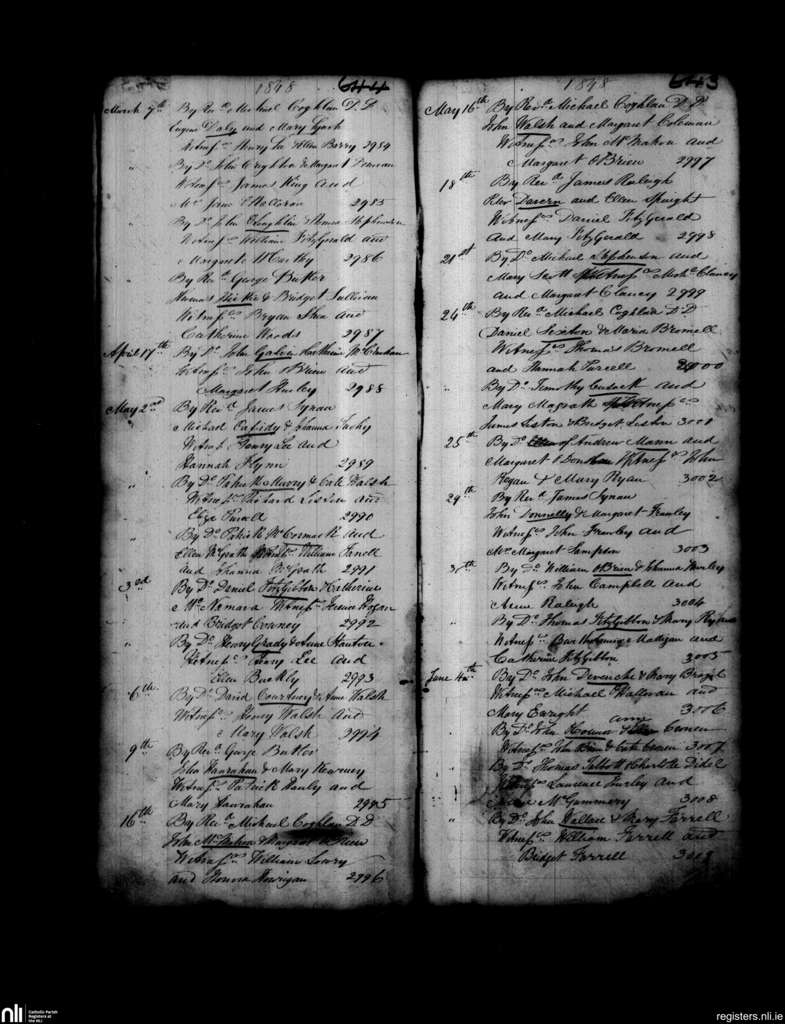 1848 644
March 7th By Revd Michael Coghlan D.D
Eugene Daly and Mary Lynch
Witnesses Henry Lee Ellen Barry 2984
" By Do John Creighton & Margaret
Witnesses James King and
Mrs Jane O'Halloran 2985
" By Do John Coughlin & Honora Stephenson
Witnesses William FitzGerald and
Margrate McCarthy 2986
" By Revd George Butler
Thomas & Bridget Sullivan
Witnesses Bryan Shea and
Catherine Woods 2987
April 17th By Do John Galvin Catherine
Witnesses John O'Brien and
Margaret Hurley 2988
May 2nd By Revd James Synan
Michael Cassidy & Johanna
Witness Henry Lee and
Hannah Flynn 2989
" By Do John & Cate Walsh
Witnesses Richard Liston and
Eliza Purcell 2990
" By Do Patrick McCormack and
Ellen McGrath Witnesses William
and Johanna McGrath 2991
3rd By Do Daniel FitzGibbon & Catherine
McNamara Witnesses James Hogan
and Bridget 2992
" By Do Henry Grady & Anne
Witnesses Henry Lee and
Ellen Buckly 2993
6th By Do David Courtney & Anne Walsh
Witnesses Henry Walsh and
Mary Walsh 2994
9th By Revd George Butler
John Hanrahan & Mary Kearney
Witnesses Patrick Hanly and
Mary Hanrahan 2995
16th By Revd Michael Coghlan D.D
John McMahon & Margaret
Witnesses William Lowry
and Honora Horrigan 2996
1848 643
May 16th By Revd Michael Coghlan D.D
John Walsh and Margaret Coleman
Witnesses John McMahon and
Margaret O'Brien 2997
18th By Revd James Raleigh
Peter and Ellen Speight
Witnesses Daniel FitzGerald
and Mary FitzGerald 2998
21st By Do Michael Stephenson and
Mary Scott Witnesses Michl Clancy
and Margaret Clancy 2999
24th By Revd Michael Coghlan D.D
Daniel Sexton & Maria Bromell
Witnesses Thomas Bromell
and Hannah Purcell 3000
" By Do Timothy Cusack and
Mary Magrath Witnesses
James Liston & Bridget Liston 3001
25th By Do Andrew Mann and
Margaret Witnesses John
Regan & Mary Ryan 3002
29th By Revd James Synan
John Donnelly & Margaret Frawley
Witnesses John Frawley and
Mrs Margaret Sampson 3003
By Do William O'Brien & Johanna Hurley
Witnesses John Campbell and
Anne Raleigh 3004
" By Do Thomas FitzGibbon & Mary
Witnesses Bartholomew Madigan and
Catherine FitzGibbon 3005
June 4th By Do John & Mary
Witnesses Michael Halloran and
Mary Enright 3006
By Do John
Witnesses John & Cate 3007
By Do Thomas & Charlotte
Witnesses Laurence Hurley and
McGemmery 3008
" By Do John Wallace & Mary Farrell
Witnesses William Farrell and
Bridget Farrell 3009
nli Catholic Parish
Registers at
the NLI
registers.nli.ie